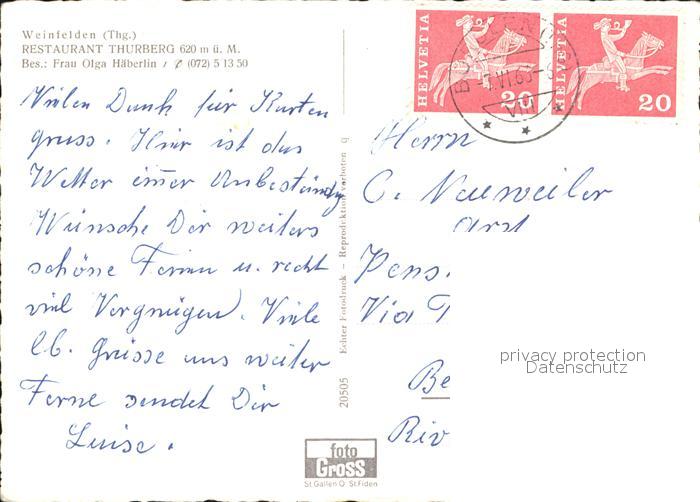 Weinfelden (Thg.)
RESTAURANT THURBERG 620 m ü. M.
Bes.: Frau Olga Häberlin / ✆ (072) 5 13 50
Vielen Dank für Karten
gruss. Hier ist das
Wetter imer Unbeständig
Wünsche Dir weiters
schöne Ferien u. recht
viel Vergnügen. Viele
lb. Grüsse aus weiter
Ferne sendet Dir
Luise.
20505 Echter Fotodruck – Reproduktion verboten q
foto
Gross
St.Gallen O St.Fiden
HELVETIA
20
HELVETIA
20
VI.65
Herrn
C. Neuweiler
Pens.
Via
privacy protection
Datenschutz
Be
Riv